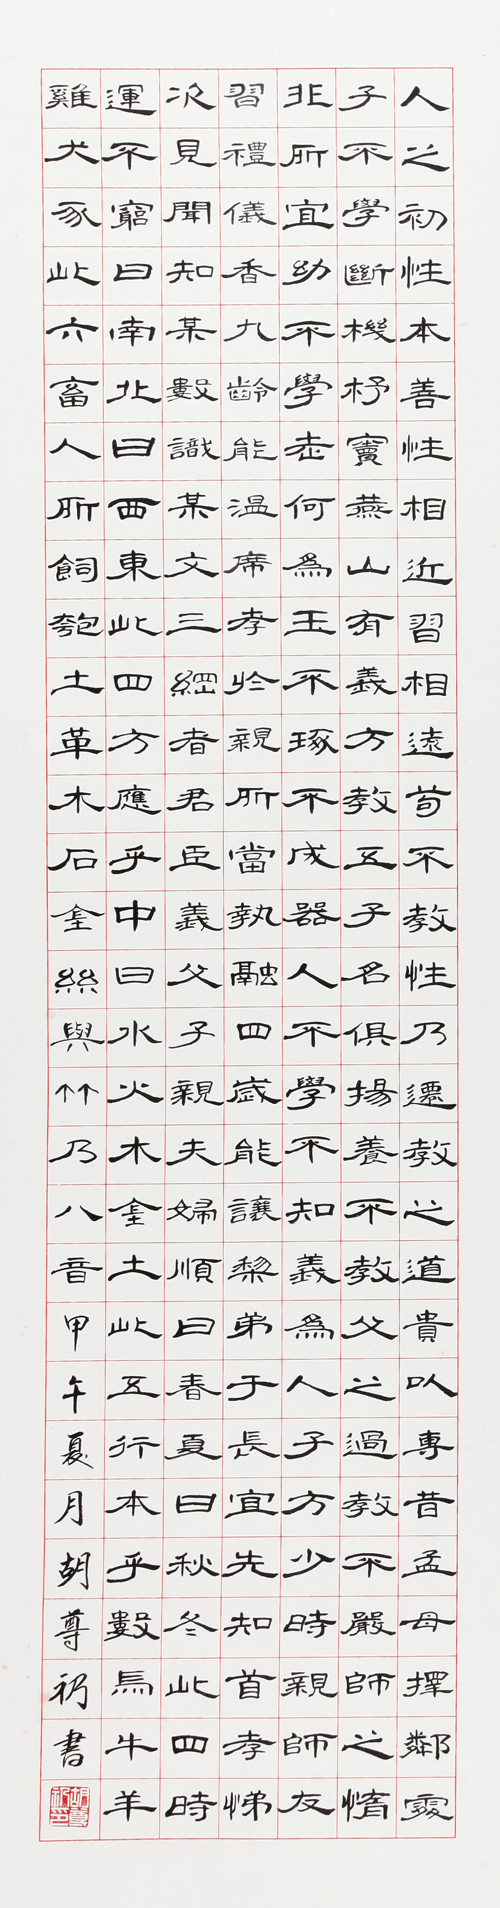 人之初性本善性相近習相遠苟不教性乃遷教之道貴以專昔孟母擇鄰處
子不學斷機杼竇燕山有義方教五子名俱揚養不教父之過教不嚴師之惰
非所宜幼不學老何為玉不琢不成器人不學不知義為人子方少時親師友
習禮儀香九齡能溫席孝於親所當執融四歲能讓梨弟于長宜先知首孝悌
次見聞知某數識某文三綱者君臣義父子親夫婦順曰春夏曰秋冬此四時
運不窮曰南北曰西東此四方應乎中曰水火木金土此五行本乎數馬牛羊
雞犬豕此六畜人所飼匏土革木石金絲與竹乃八音甲午夏月胡尊礽書